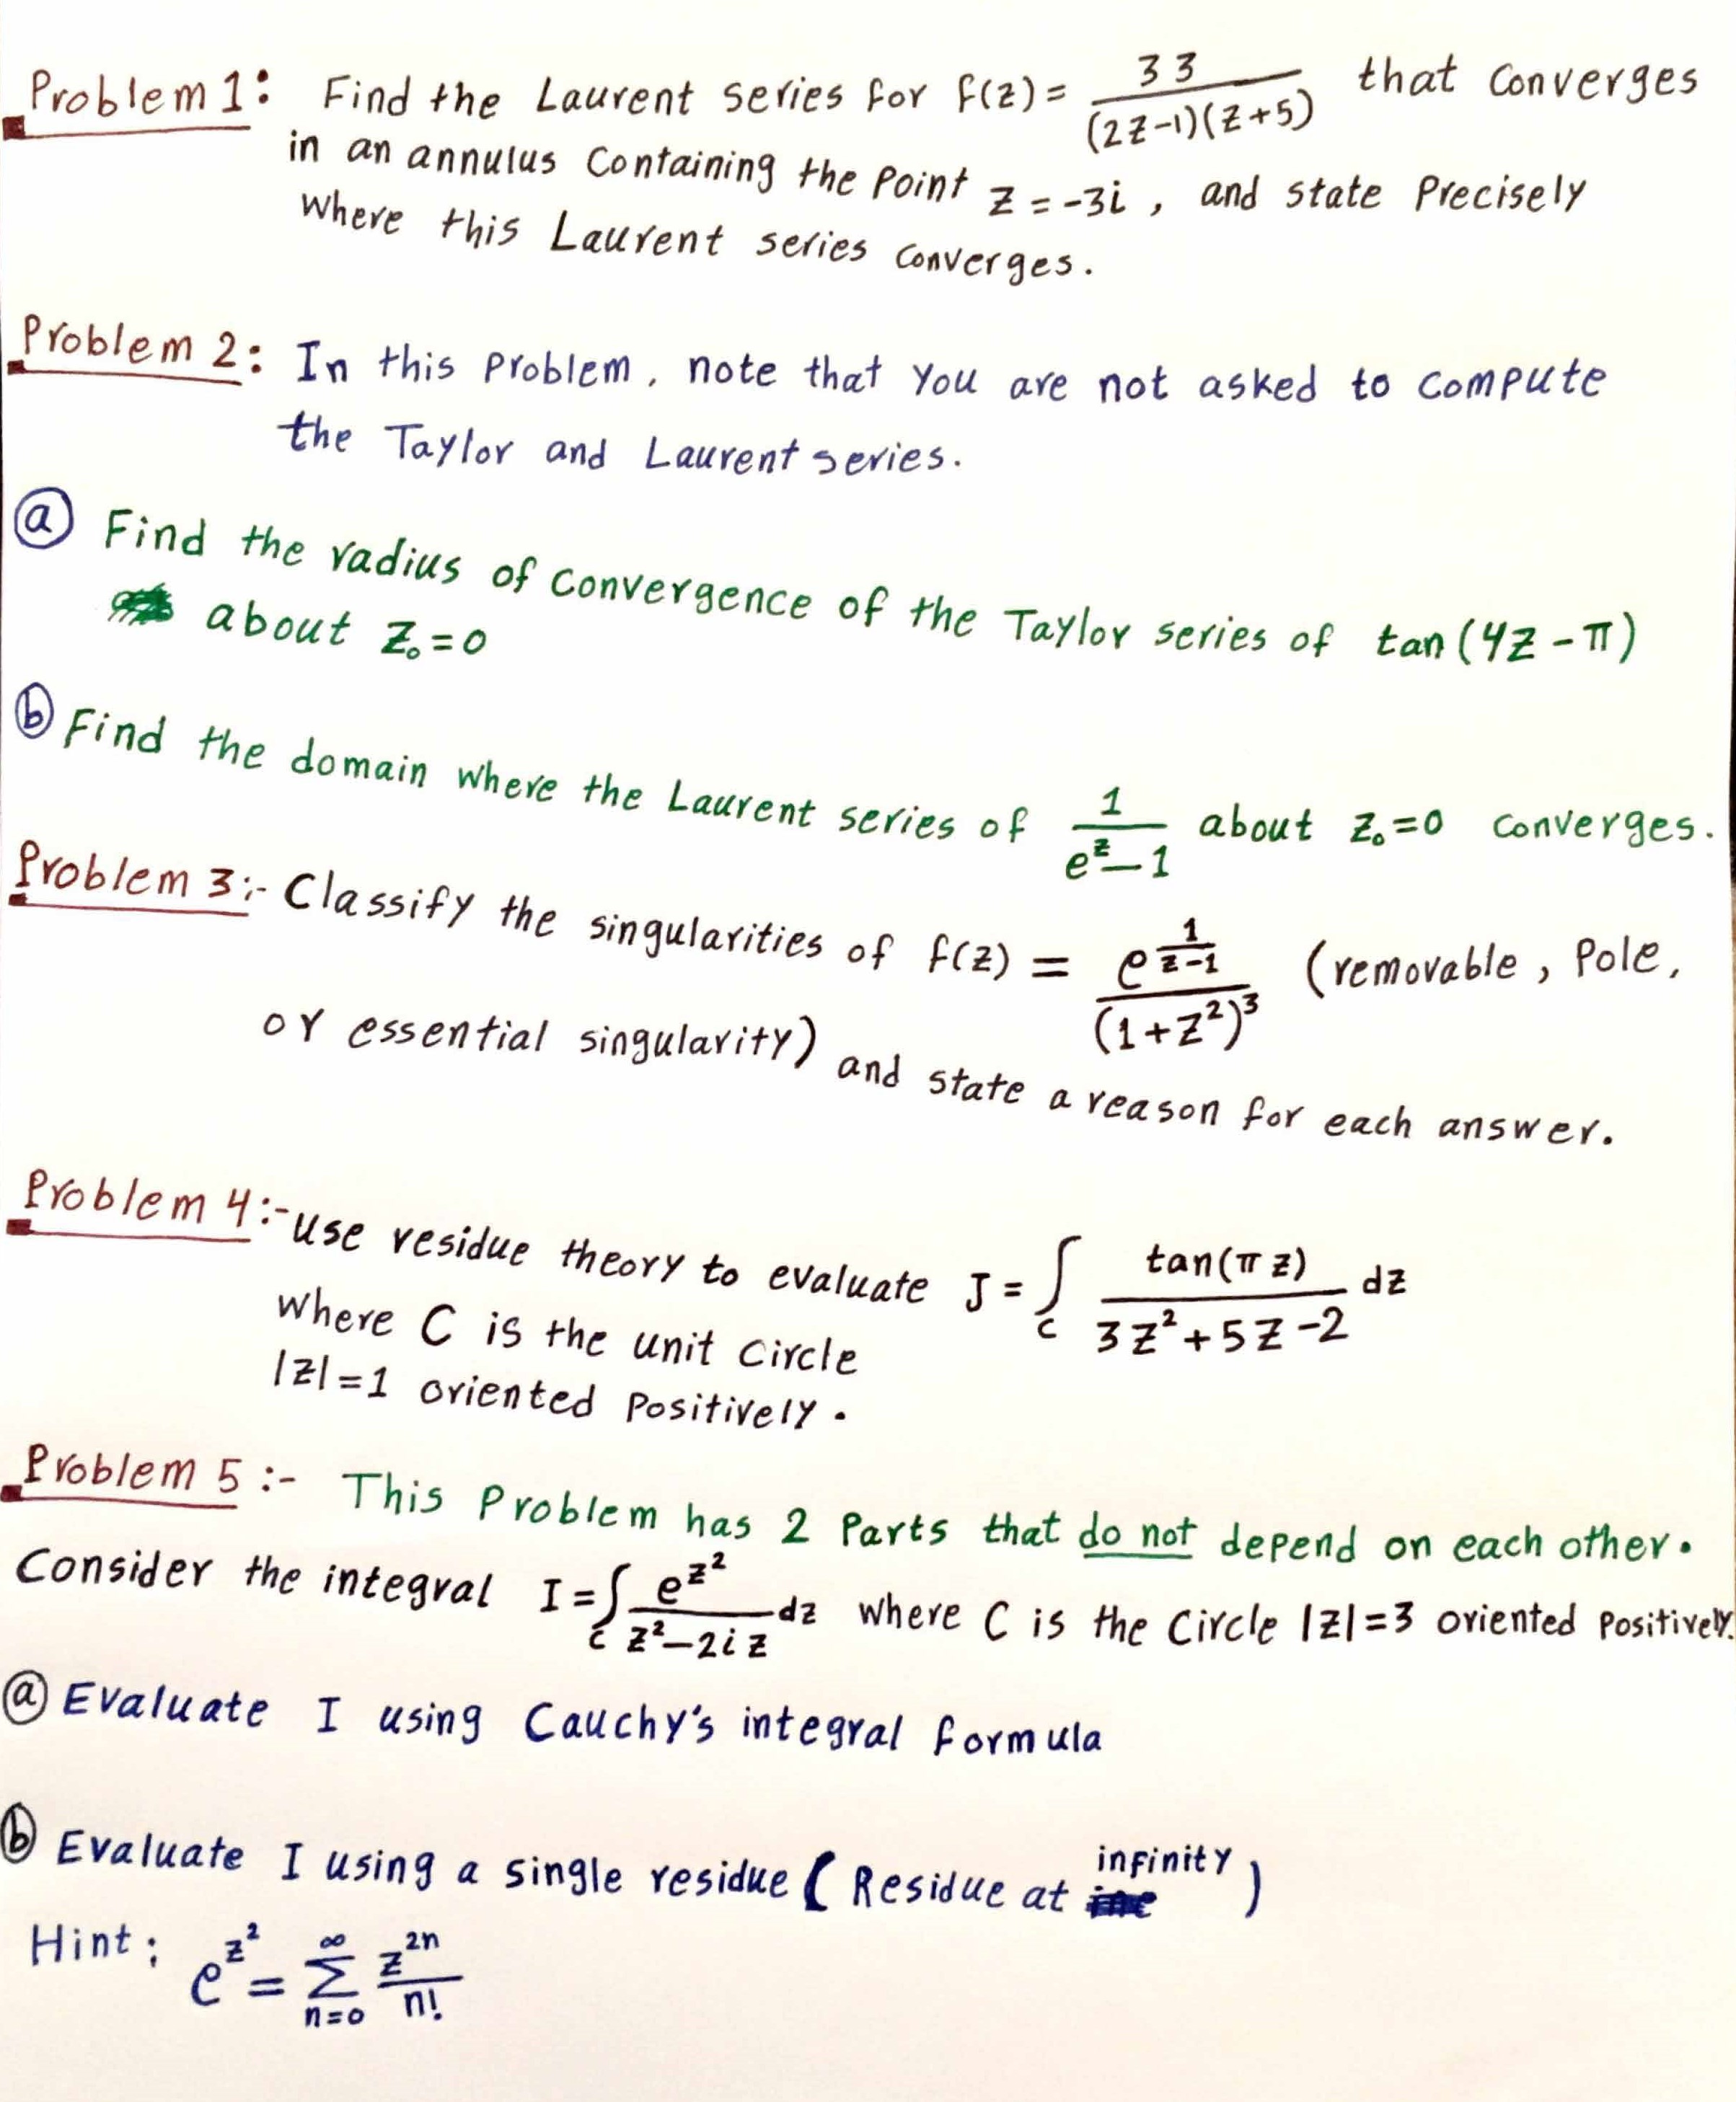 Problem 1: Find the Laurent series for f(z) = 33/((2z-1)(z+5)) that converges
in an annulus containing the point z = -3i , and state precisely
where this Laurent series converges.
Problem 2: In this problem, note that you are not asked to compute
the Taylor and Laurent series.
(a) Find the radius of convergence of the Taylor series of tan(4z - π)
about z₀ = 0
(b) Find the domain where the Laurent series of 1/(e^z - 1) about z₀ = 0 converges.
Problem 3:- Classify the singularities of f(z) = e^(1/(z-1))/(1+z²)³ (removable, pole,
or essential singularity) and state a reason for each answer.
Problem 4:- use residue theory to evaluate J = ∫_C tan(πz)/(3z²+5z-2) dz
where C is the unit circle
|z| = 1 oriented positively.
Problem 5:- This problem has 2 parts that do not depend on each other.
Consider the integral I = ∫_C e^(z²)/(z²-2iz) dz where C is the circle |z| = 3 oriented positively.
(a) Evaluate I using Cauchy's integral formula
(b) Evaluate I using a single residue (Residue at infinity)
Hint: e^(z²) = Σ_(n=0)^∞ z^(2n)/n!